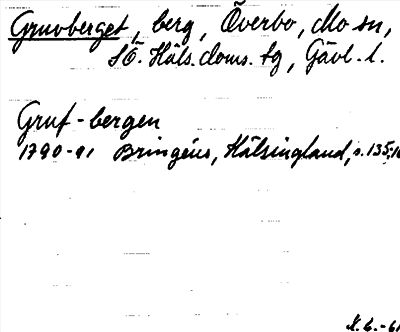 Gruvberget, berg, Överbo, Mo sn,
SÖ. Häls. doms. tg, Gävl. l.
Gruf-bergen
1790-91 Bringéus, Hälsingland, s. 135,